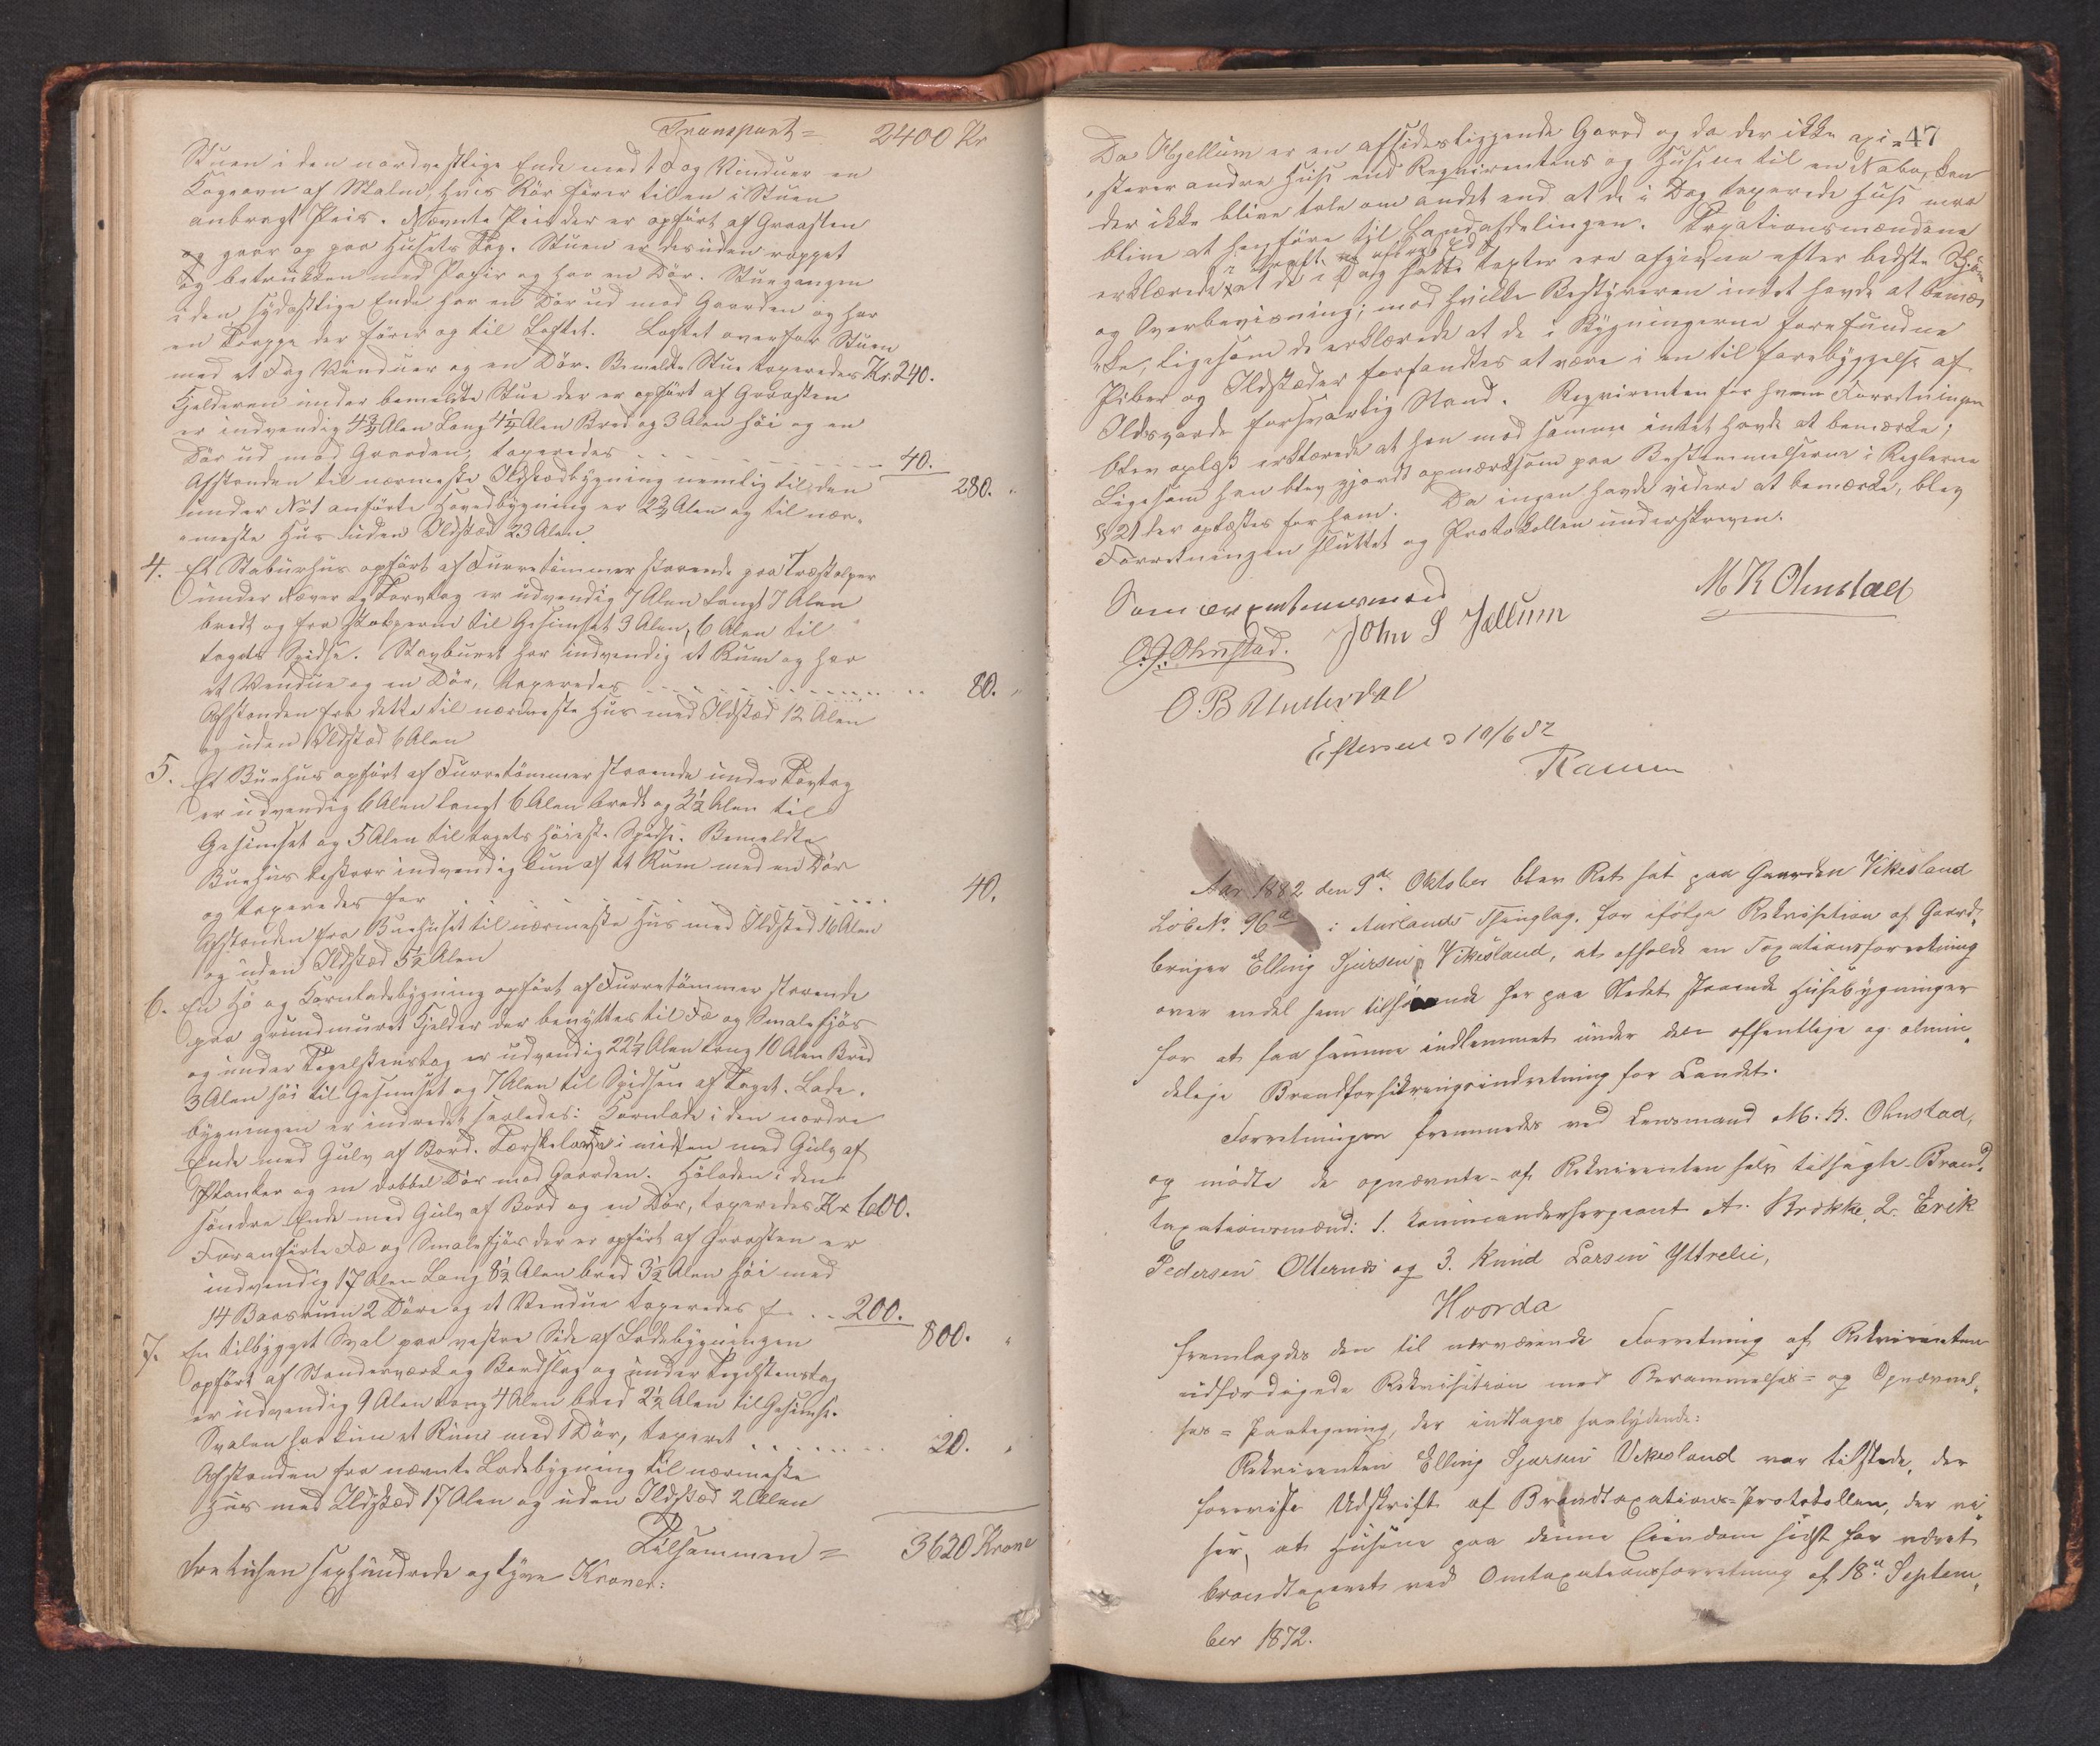 Transport = 2400 Kr
Stuen i den nordvestlige Ende med 1 Fag Vinduer en
Kogeovn af Malm, hvis Rör förer til en i Stuen
anbragt Peis. Nævnte Peis der er opfört af Graasten
og gaar op paa Husets Tag. Stuen er desuden rappet
og betrukken med Papir og har en Dör. Stuegangen
i den sydöstlige Ende har en Dör ud mod Gaarden og har
en Trappe der förer op til Loftet. Loftet over for Stuen
med et Fag Vinduer og en Dör. Bemeldte Stue taxeredes Kr. 240.
Kjelderen under bemeldte Stue der er opfört af Graasten
er indvendig 4 3/4 Alen Lang 4 1/4 Alen Bred og 3 Alen höi og en
Dör ud mod Gaarden, taxeredes 40.
280.
Afstanden til nærmeste Ildstedbygning nemlig til den
under No 1 anförte Hovedbygning er 2 3/4 Alen og til nær-
meste Hus uden Ildsted 23 Alen.
4. Et Staburhus opfört af Furretömmer staaende paa Træstolper
under Næver og Torvtag er udvendig 7 Alen langt 7 Alen
bredt og fra Stolperne til Gesimset 3 Alen, 6 Alen til
tagets Spidse. Stavburet har indvendig et Rum og har
et Vendue og en Dör, taxeredes 80.
Afstanden fra dette til nærmeste Hus med Ildsted 12 Alen
og uden Ildsted 6 Alen
5. Et Buehus opfört af Furretömmer staaende under Torvtag
er udvendig 6 Alen langt 6 Alen bredt og 3 1/2 Alen til
Gesimset og 5 Alen til tagets höieste Spidse. Bemeldte
Buehus bestaar indvendig kun af et Rum med en Dör
og taxeredes for 40.
Afstanden fra Buehuset til nærmeste Hus med Ildsted 16 Alen
og uden Ildsted 5 1/2 Alen
6. En Hö og Kornladebygning opfört af Furretömmer staaende
paa grundmuret Kjelder der benyttes til Fæ og Smalefjös
og under Tegelstenstag er udvendig 22 1/2 Alen lang 10 Alen Bred
3 Alen höi til Gesimset og 7 Alen til Spidsen af Taget. Lade-
bygningen er indredet saaledes: Kornlade i den nordre
Ende med Gulv af Bord. Tærskelove i midten med Gulv af
Planker og en dobbel Dör mod Gaarden. Höladen i den
söndre Ende med Gulv af Bord og en Dör, taxeredes Kr. 600.
Foranförte Fæ og Smalefjös der er opfört af Graasten er
indvendig 17 Alen Lang 8 1/2 Alen bred 3 1/2 Alen höi med
14 Baasrum 2 Döre og et Vendue taxeredes for 200.
800.
7. En tilbygget Sval paa vestre Side af Ladebygningen
opfört af Stenderværk og Bordslag og under Tegelstenstag
er udvendig 9 Alen lang 4 Alen bred 2 1/2 Alen til Gesimse.
Svalen har kun et Rum med 1 Dör, taxeret 20.
Afstanden fra nævnte Ladebygning til nærmeste
Hus med Ildsted 17 Alen og uden Ildsted 2 Alen
Tilsammen = 3620 Krone
Tretusen sexhundrede og tyve Kroner.
47
Da Hjellum er en afsidesliggende Gaard og da der ikke exi-
sterer andre Huse end Reqvirentens og Husene til en Nabo, kan
der ikke blive tale om andet end at de i Dag taxerede Huse maa
blive at henföre til Landafdelingen. Taxationsmændene
i Kraft af aflagt Ed
erklærede at de i Dag satte Taxter ere afgivne efter bedste Skjön
og Overbeviisning; mod hvilke Bestyreren intet havde at bemær-
ke, ligesom de erklærede at de i Bygningerne forefundne
Piber og Ildsteder forfandtes at være i en til forebyggelse af
Ildsvaade forsvarlig Stand. Reqvirenten for hvem Forretningen
blev oplæst erklærede at han mod samme intet havde at bemærke;
Ligesom han blev gjordt opmærksom paa Bestemmelserne i Reglerne
§ 21 der oplæstes for ham. Da ingen havde videre at bemærke, blev
Forretningen sluttet og Protokollen underskreven.
M K Ohnstad
Som
O.J. Ohnstad. John S Jellum
O. B Underdal
Efterseet 10/6 82
Aar 1882 den 9de Oktober blev Ret sat paa Gaarden Vikesland
Löb No. 96 a i Aurlands Thinglag, for ifölge Rekvisition af Gaard-
bruger Elling Sjursen Vikesland, at afholde en Taxationsforretning
over endel ham tilhörende her paa Stedet staaende Husebygninger
for at faa samme indlemmet under den offentlige og almin-
delige Brandforsikringsindretning for Landet.
Forretningen fremmedes ved Lensmand M. K. Ohnstad,
og mödte de opnævnte af Rekvirenten selv tilsagte Brand-
taxationsmænd: 1. Kommandersergeant A. Brekke, 2. Erik
Pedersen Otternes og 3. Knud Larsen Yttrelii,
Hvorda
fremlagdes den til nærværende Forretning af Rekvirenten
udfærdigede Rekvisition med Berammelses- og Opnævnel-
ses-Paategning, der indtages saalydende:
Rekvirenten Elling Sjursen Vikesland var tilstede, der
foreviste Udskrift af Brandtaxations-Protokollen, der vi-
ser, at Husene paa denne Eiendom sidst har været
brandtaxeret ved Omtaxationsforretning af 18de Septem-
ber 1872.